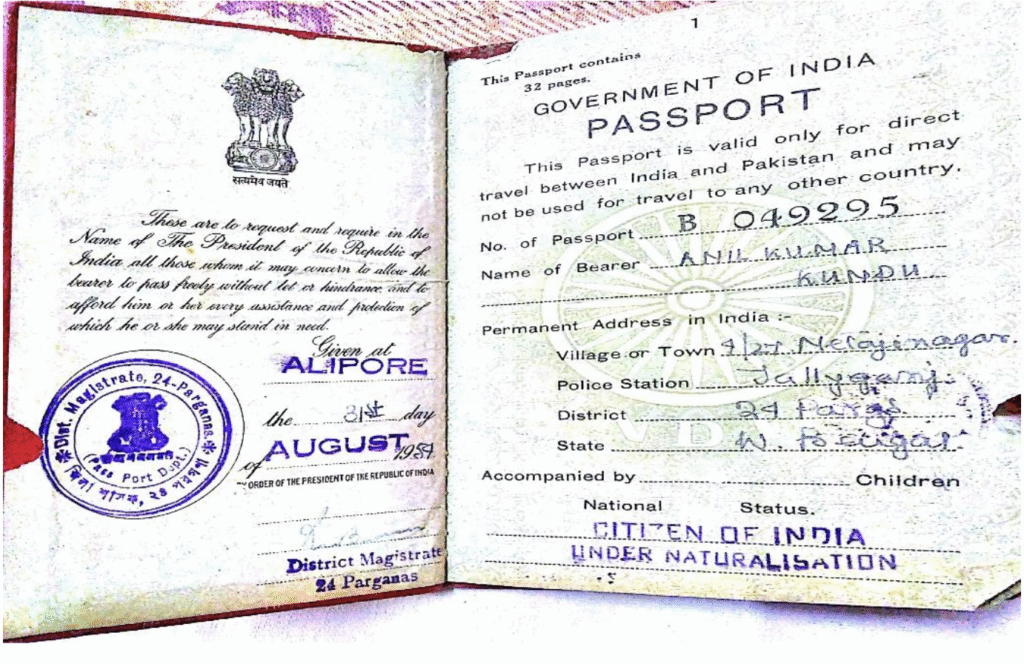 सत्यमेव जयते
These are to request and require in the
Name of The President of the Republic of
India all those whom it may concern to allow the
bearer to pass freely without let or hindrance and to
afford him or her every assistance and protection of
which he or she may stand in need.
Given at
ALIPORE
the 31st day
of AUGUST 1954
BY ORDER OF THE PRESIDENT OF THE REPUBLIC OF INDIA
District Magistrate
24 Parganas
Dist. Magistrate, 24-Parganas.
(Pass Port Deptt.)
জিলা শাসক, ২৪ পরগণা
1
This Passport contains
32 pages.
GOVERNMENT OF INDIA
PASSPORT
This Passport is valid only for direct
travel between India and Pakistan and may
not be used for travel to any other country.
No. of Passport B 049295
Name of Bearer ANIL KUMAR
KUNDU
Permanent Address in India :-
Village or Town 4/27 Netajinagar.
Police Station Jallyganj.
District 24 Pargs
State W. Bengal.
Accompanied by Children
National Status.
CITIZEN OF INDIA
UNDER NATURALISATION